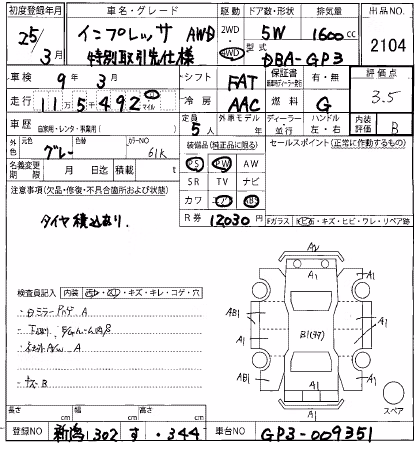 初度登録年月 車名・グレード 駆動 ドア数・形状 排気量 出品NO.
25/3月 インプレッサ AWD 2WD 4WD 5W 1600cc 2104
特別取引先仕様 型式 DBA-GP3
車検 9年 3月 シフト FAT 保証書 有・無 評価点 3.5
走行 11万5492 マイル 冷房 AAC 燃料 G
車歴 自家用・レンタ・事業用 定員 5人 外車モデル ディーラー・並行 ハンドル 左・右 内装評価 B
外色 元色 グレー 色替 カラーNO 61K
装備品(純正品に限る) セールスポイント(正常に作動するもの)
PS PW AW
SR TV ナビ
カワ エアB ABS
名義変更期限 月 日 積載 t
R券 12030円
Fガラス ヒビ・ワレ・リペア跡
注意事項(欠品・修復・不具合箇所および状態)
タイヤ積込有り。
検査員記入 内装 キズ・キレ・コゲ・穴
A2
A1
A1
A1
AB1
A1
B1(サビ)
AB1
A1
A1
A1
スペア
長さ cm 幅 cm 高さ cm
登録NO 新潟 302 す ・344 車台NO GP3-009351